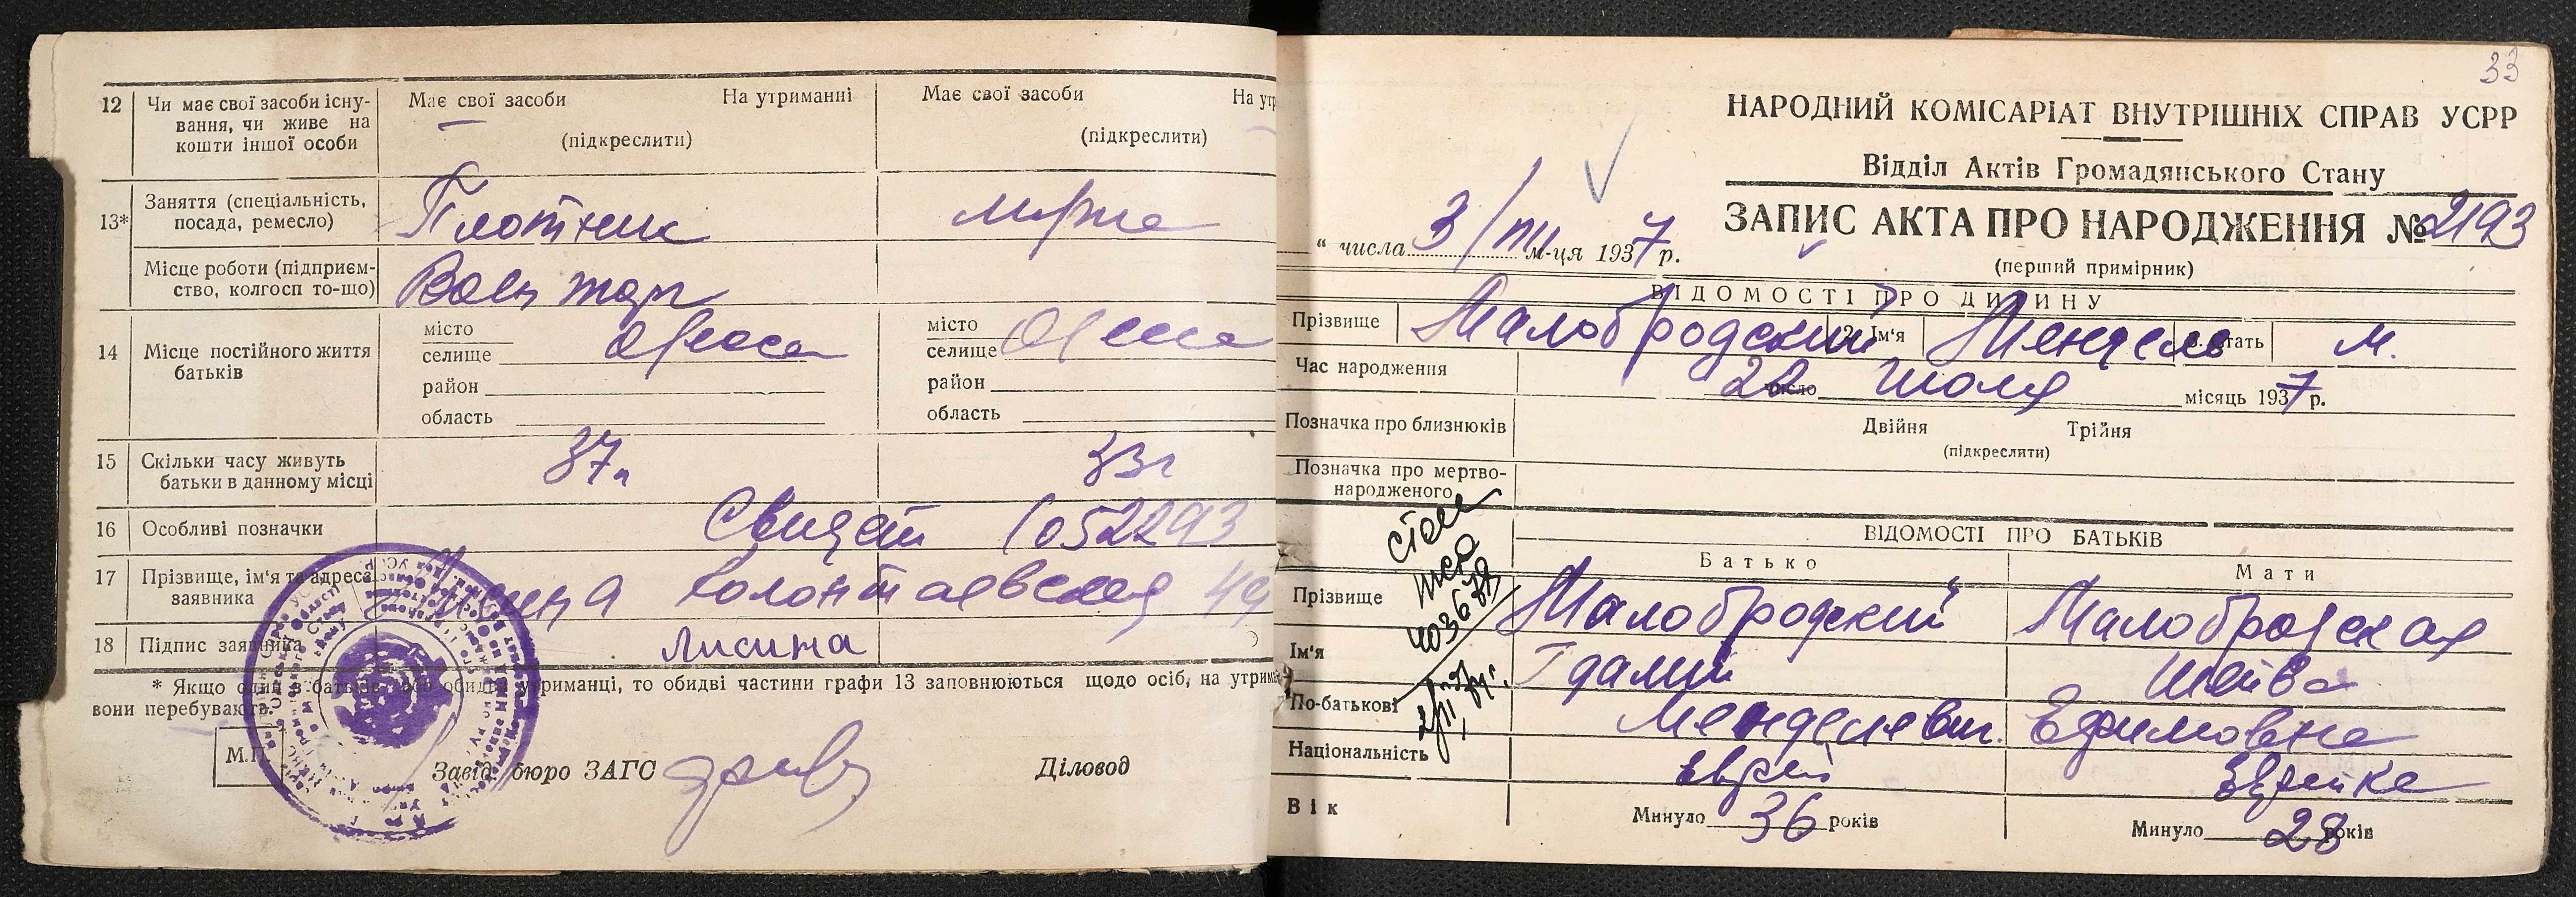 12 Чи має свої засоби існу-
вання, чи живе на
кошти іншої особи
Має свої засоби На утриманні
(підкреслити)
Має свої засоби На утр
(підкреслити)
13* Заняття (спеціальність,
посада, ремесло)
Плотник
Місце роботи (підприєм-
ство, колгосп то-що)
14 Місце постійного життя
батьків
місто
селище Одесса
район
область
місто
селище Одесса
район
область
15 Скільки часу живуть
батьки в данному місці
37г 33г
16 Особливі позначки
Свидет 1052293
17 Прізвище, ім'я та адреса
заявника
Колонтаевская 44
18 Підпис заявника
Лисина
* Якщо один з батьків або обидва утриманці, то обидві частини графи 13 заповнюються щодо осіб, на утрим
вони перебувають.
М.П.
Завід. бюро ЗАГС
Діловод
33
НАРОДНИЙ КОМІСАРІАТ ВНУТРІШНІХ СПРАВ УСРР
Відділ Актів Громадянського Стану
ЗАПИС АКТА ПРО НАРОДЖЕННЯ № 2193
" числа 3/VIII м-ця 1937 р.
(перший примірник)
ВІДОМОСТІ ПРО ДИТИНУ
Прізвище Малобродский 2. Ім'я Мендель 3. Стать м.
Час народження
22 число Июля місяць 1937 р.
Позначка про близнюків
Двійня Трійня
(підкреслити)
Позначка про мертво-
народженого
ВІДОМОСТІ ПРО БАТЬКІВ
Батько Мати
Прізвище Малобродский Малобродская
Ім'я Гдалий Шейва
По-батькові Менделевич. Ефимовна
Національність еврей Еврейка
Вік
Минуло 36 років Минуло 28 років